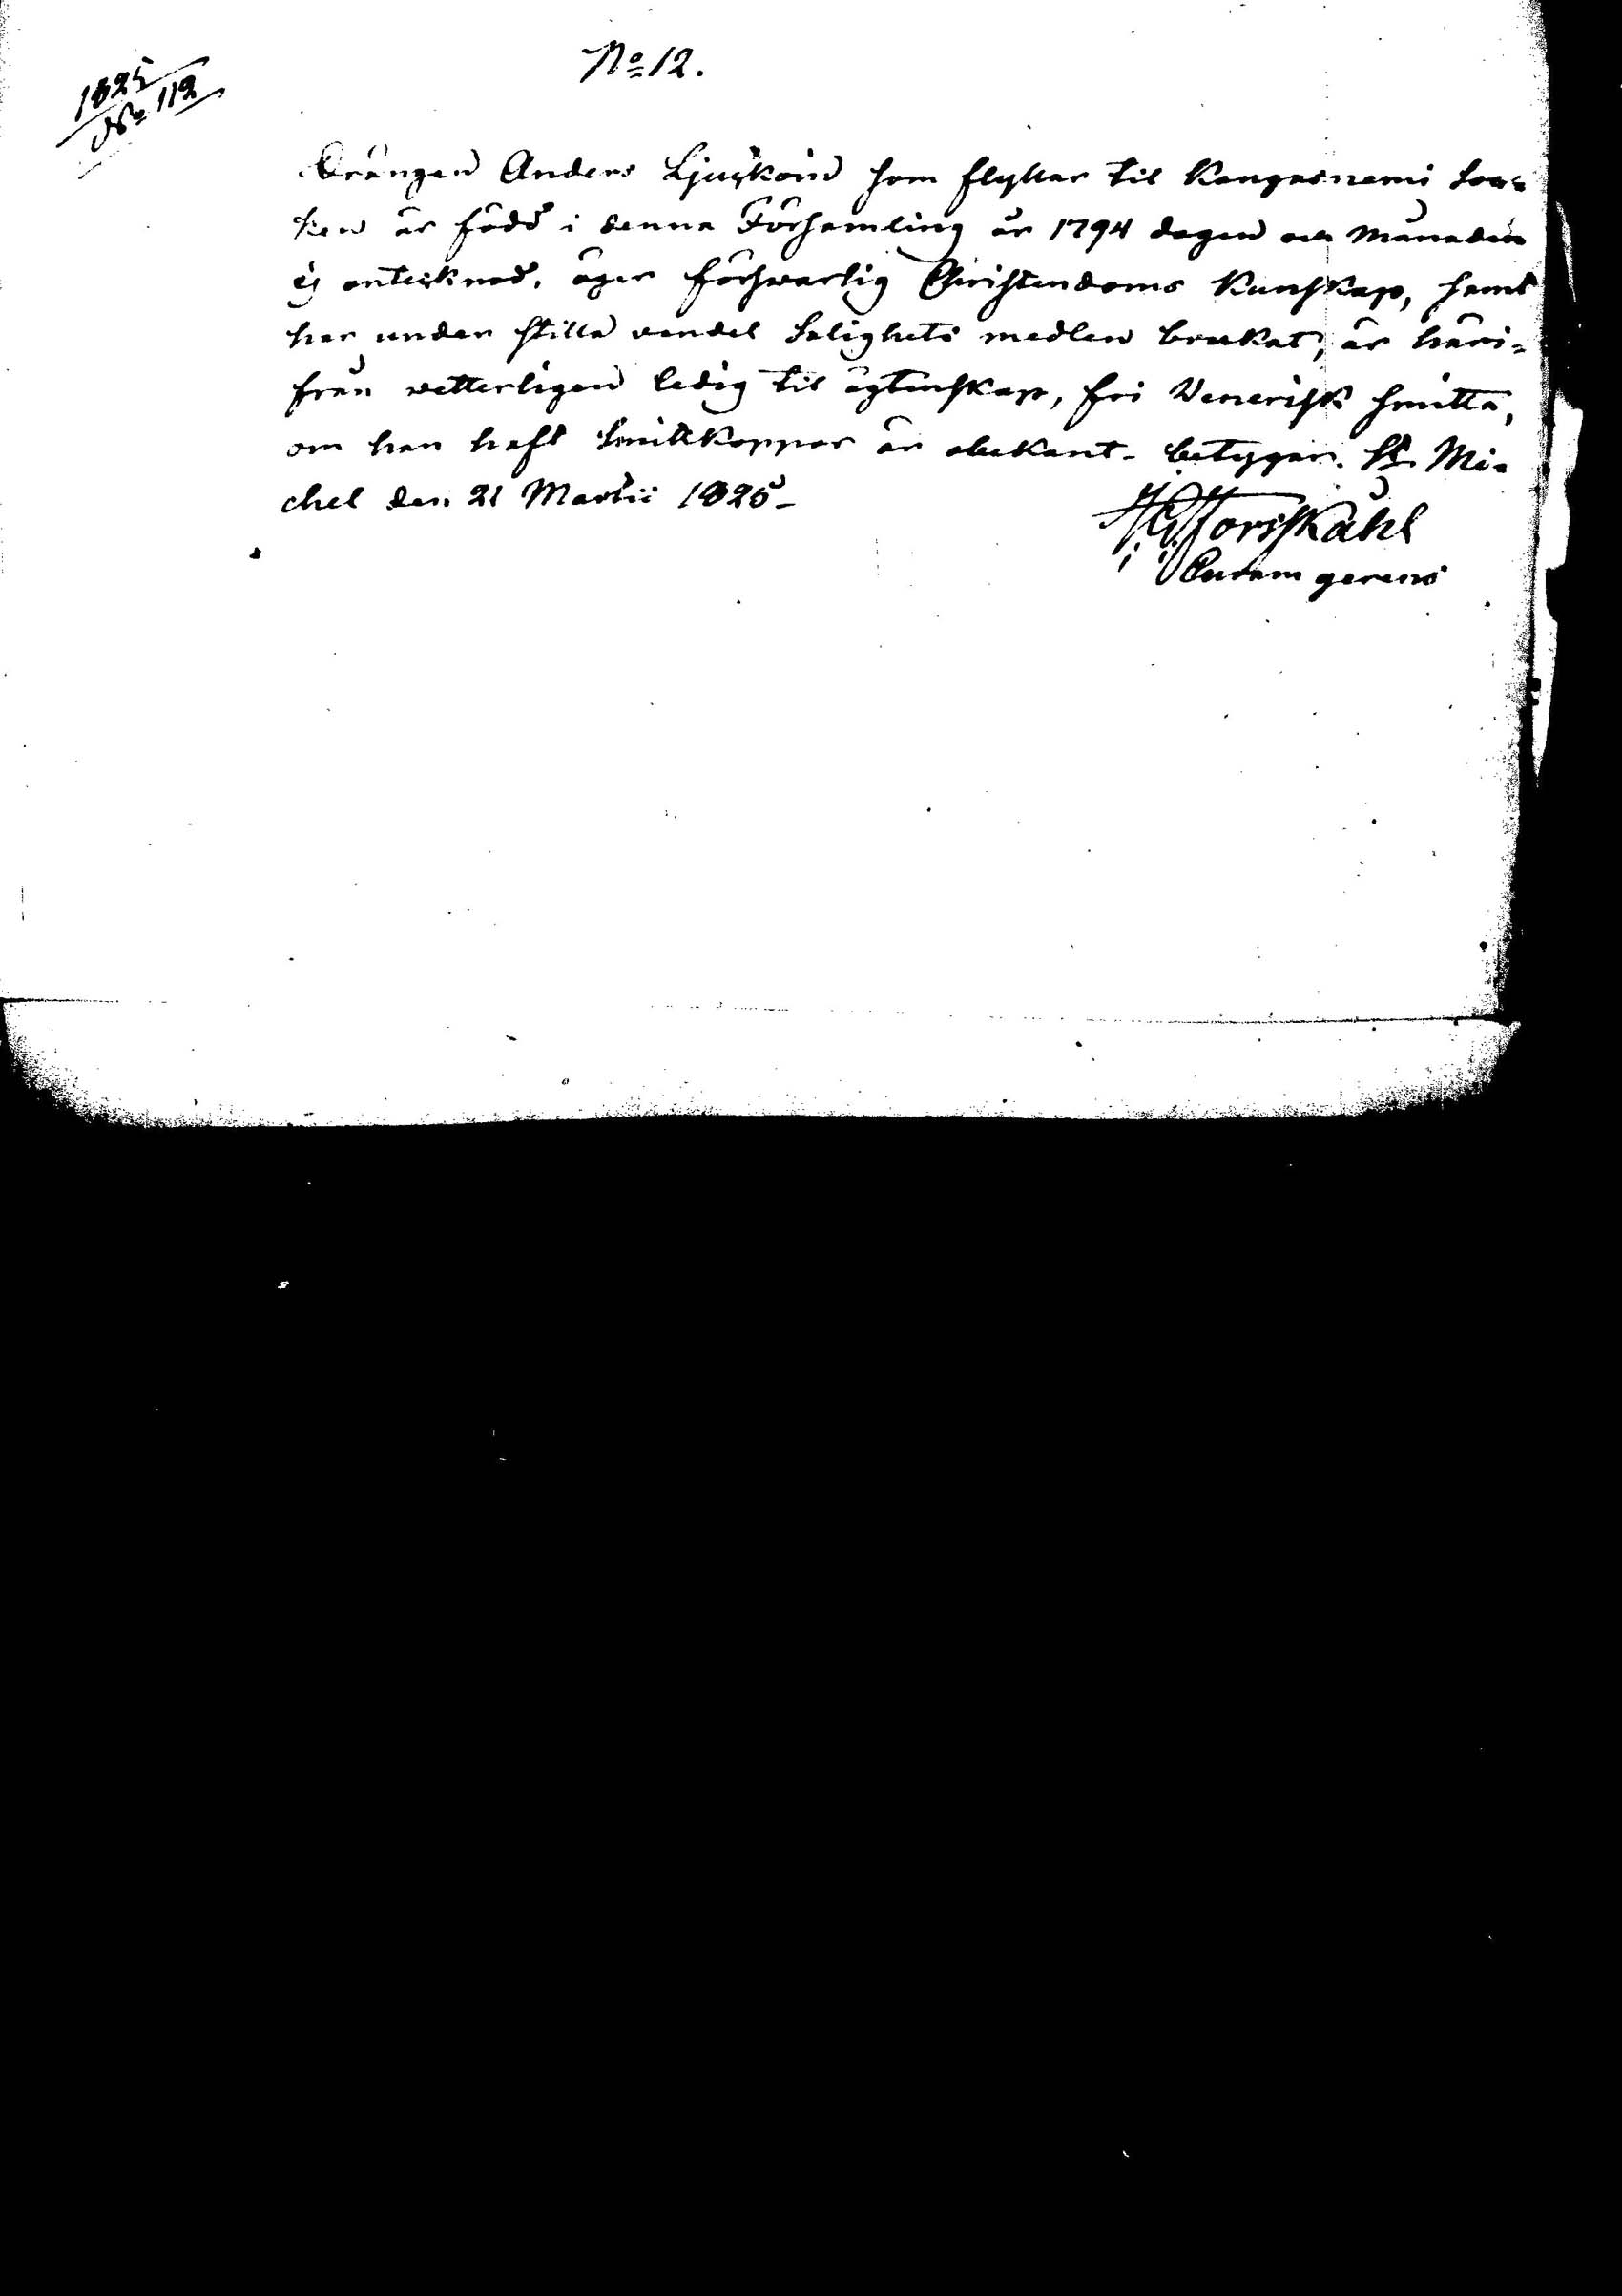 No 12.
1825
No 112
Drängen Anders Ljuskoin som flyttar til Kangasnemi Soc=
ken är född i denna Församling år 1794 dagen och Månaden
ej anteknad, äger försvarlig Christendoms Kunskap, samt
har under stilla vandel Salighets medlen brukat, är häri=
från vetterligen ledig til ägtenskap, fri Venerisk smitta,
om han haft Smittkoppor är obekant_ betygar. St. Mi=
chel den 21 Martii 1825_
Forsskåhl
Curam gerens